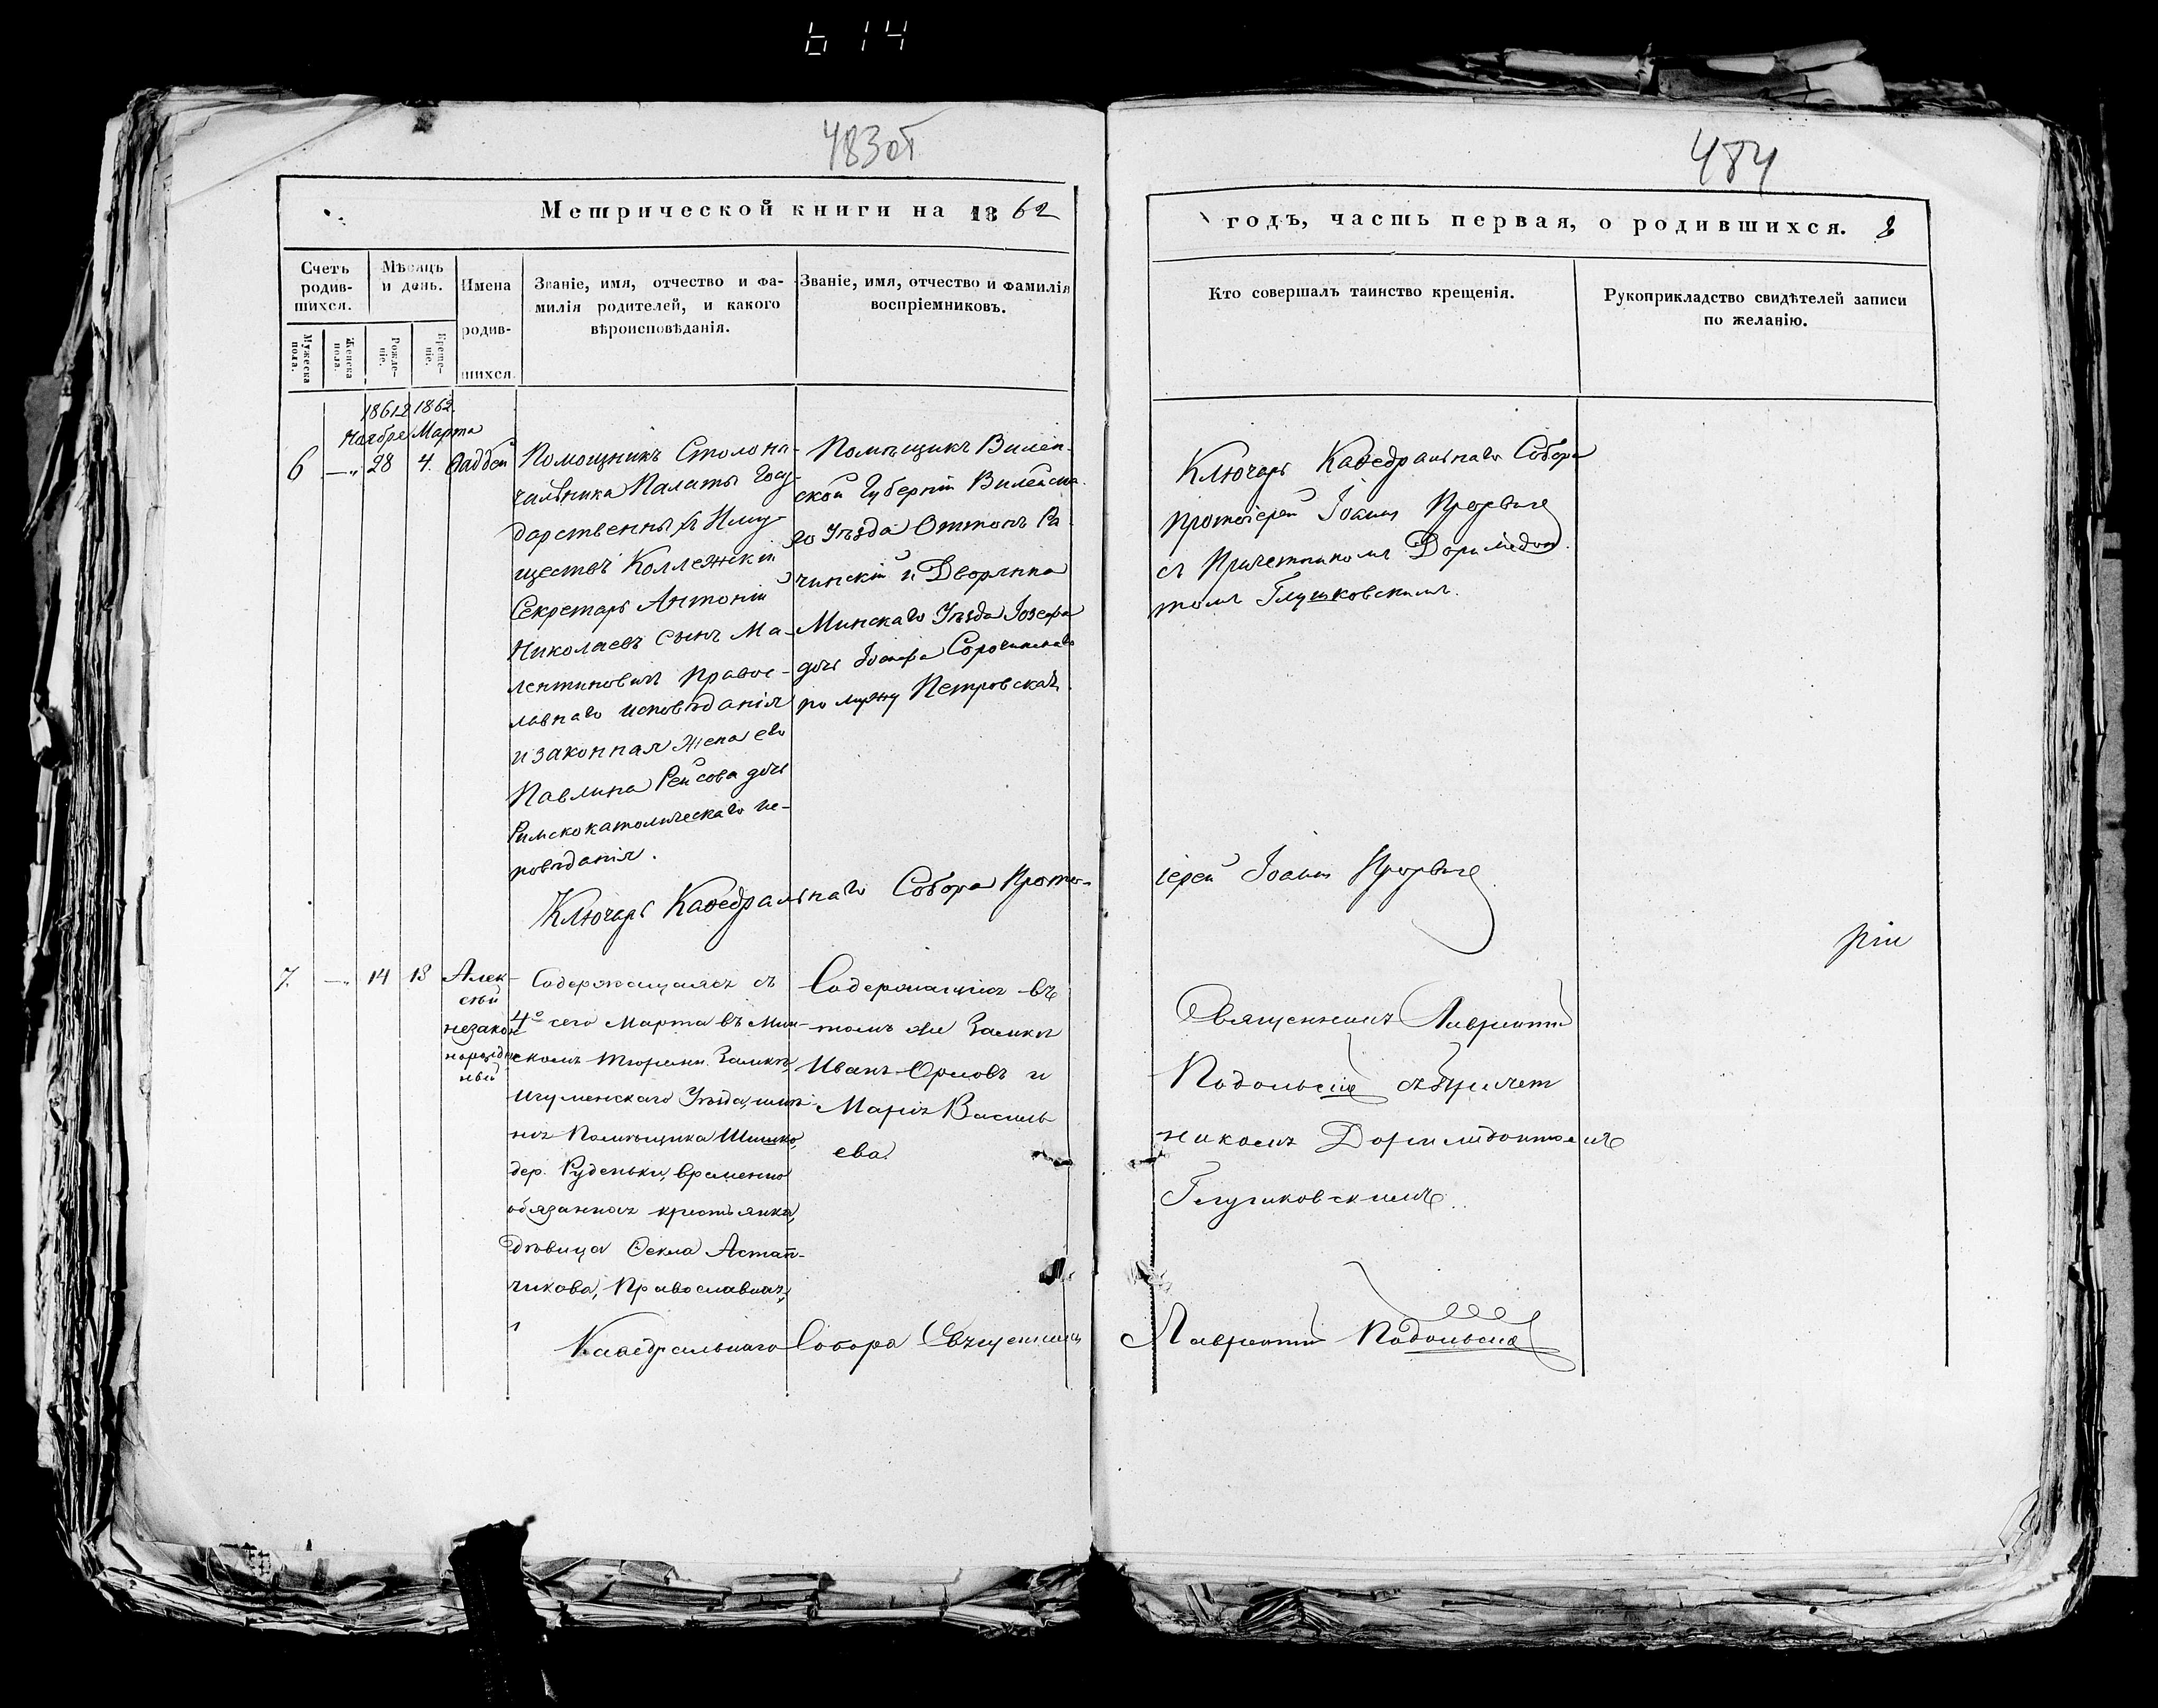 614
483об
484
Метрической книги на 1862
годъ, часть первая, о родившихся. 8
Счетъ родившихся.
Мужеска пола.
Женска пола.
Мѣсяцъ и день.
Рожденіе.
Крещеніе.
Имена родившихся.
Званіе, имя, отчество и фамилія родителей, и какого вѣроисповѣданія.
Званіе, имя, отчество и фамилія воспріемниковъ.
Кто совершалъ таинство крещенія.
Рукоприкладство свидѣтелей записи по желанію.
1861 1862.
Ноября Марта
6 —„ 28 4. Фаддей
Помощникъ Столона-
чальника Палаты Госу-
дарственныхъ Иму-
ществъ Коллежскій
Секретарь Антоній
Николаевъ сынъ Ма-
лентиновичъ Правос-
лавнаго исповѣданія
и законная жена его
Павлина Рейсова дочь
Римскокатолическаго ис-
повѣданія.
Помѣщикъ Вилен-
ской Губерніи Вилейска-
го Уѣзда Оттонъ
и Дворянка
Минскаго Уѣзда Іозефа
дочь Іосифа Сорочинскаго
по мужу Петровская.
Ключарь Кафедральнаго Собора
протоіерей Іоаннъ
съ Причетникомъ Доримедон-
томъ Глушковскимъ.
Ключарь Кафедральнаго Собора Прото-
іерей Іоаннъ
7. —„ 14 18 Алек-
сѣй
незакон
норожден
ный
Содержащаяся съ
4го сего Марта въ Мин-
скомъ Тюремн. Замкѣ,
Игуменскаго Уѣзда, имѣ-
нія Помѣщика Шишко,
дер. Руденьки, временно
обязанная крестьянка,
дѣвица Фекла Астап-
чикова, Православная,
Содержащіеся въ
томъ же Замкѣ
Иванъ Орловъ и
Марія Василь
ева.
Священникъ Лаврентій
Подольскій съ Причет
никомъ Доримедонтомъ
Глушковскимъ.
Кафедральнаго Собора Священникъ
Лаврентій Подольскій